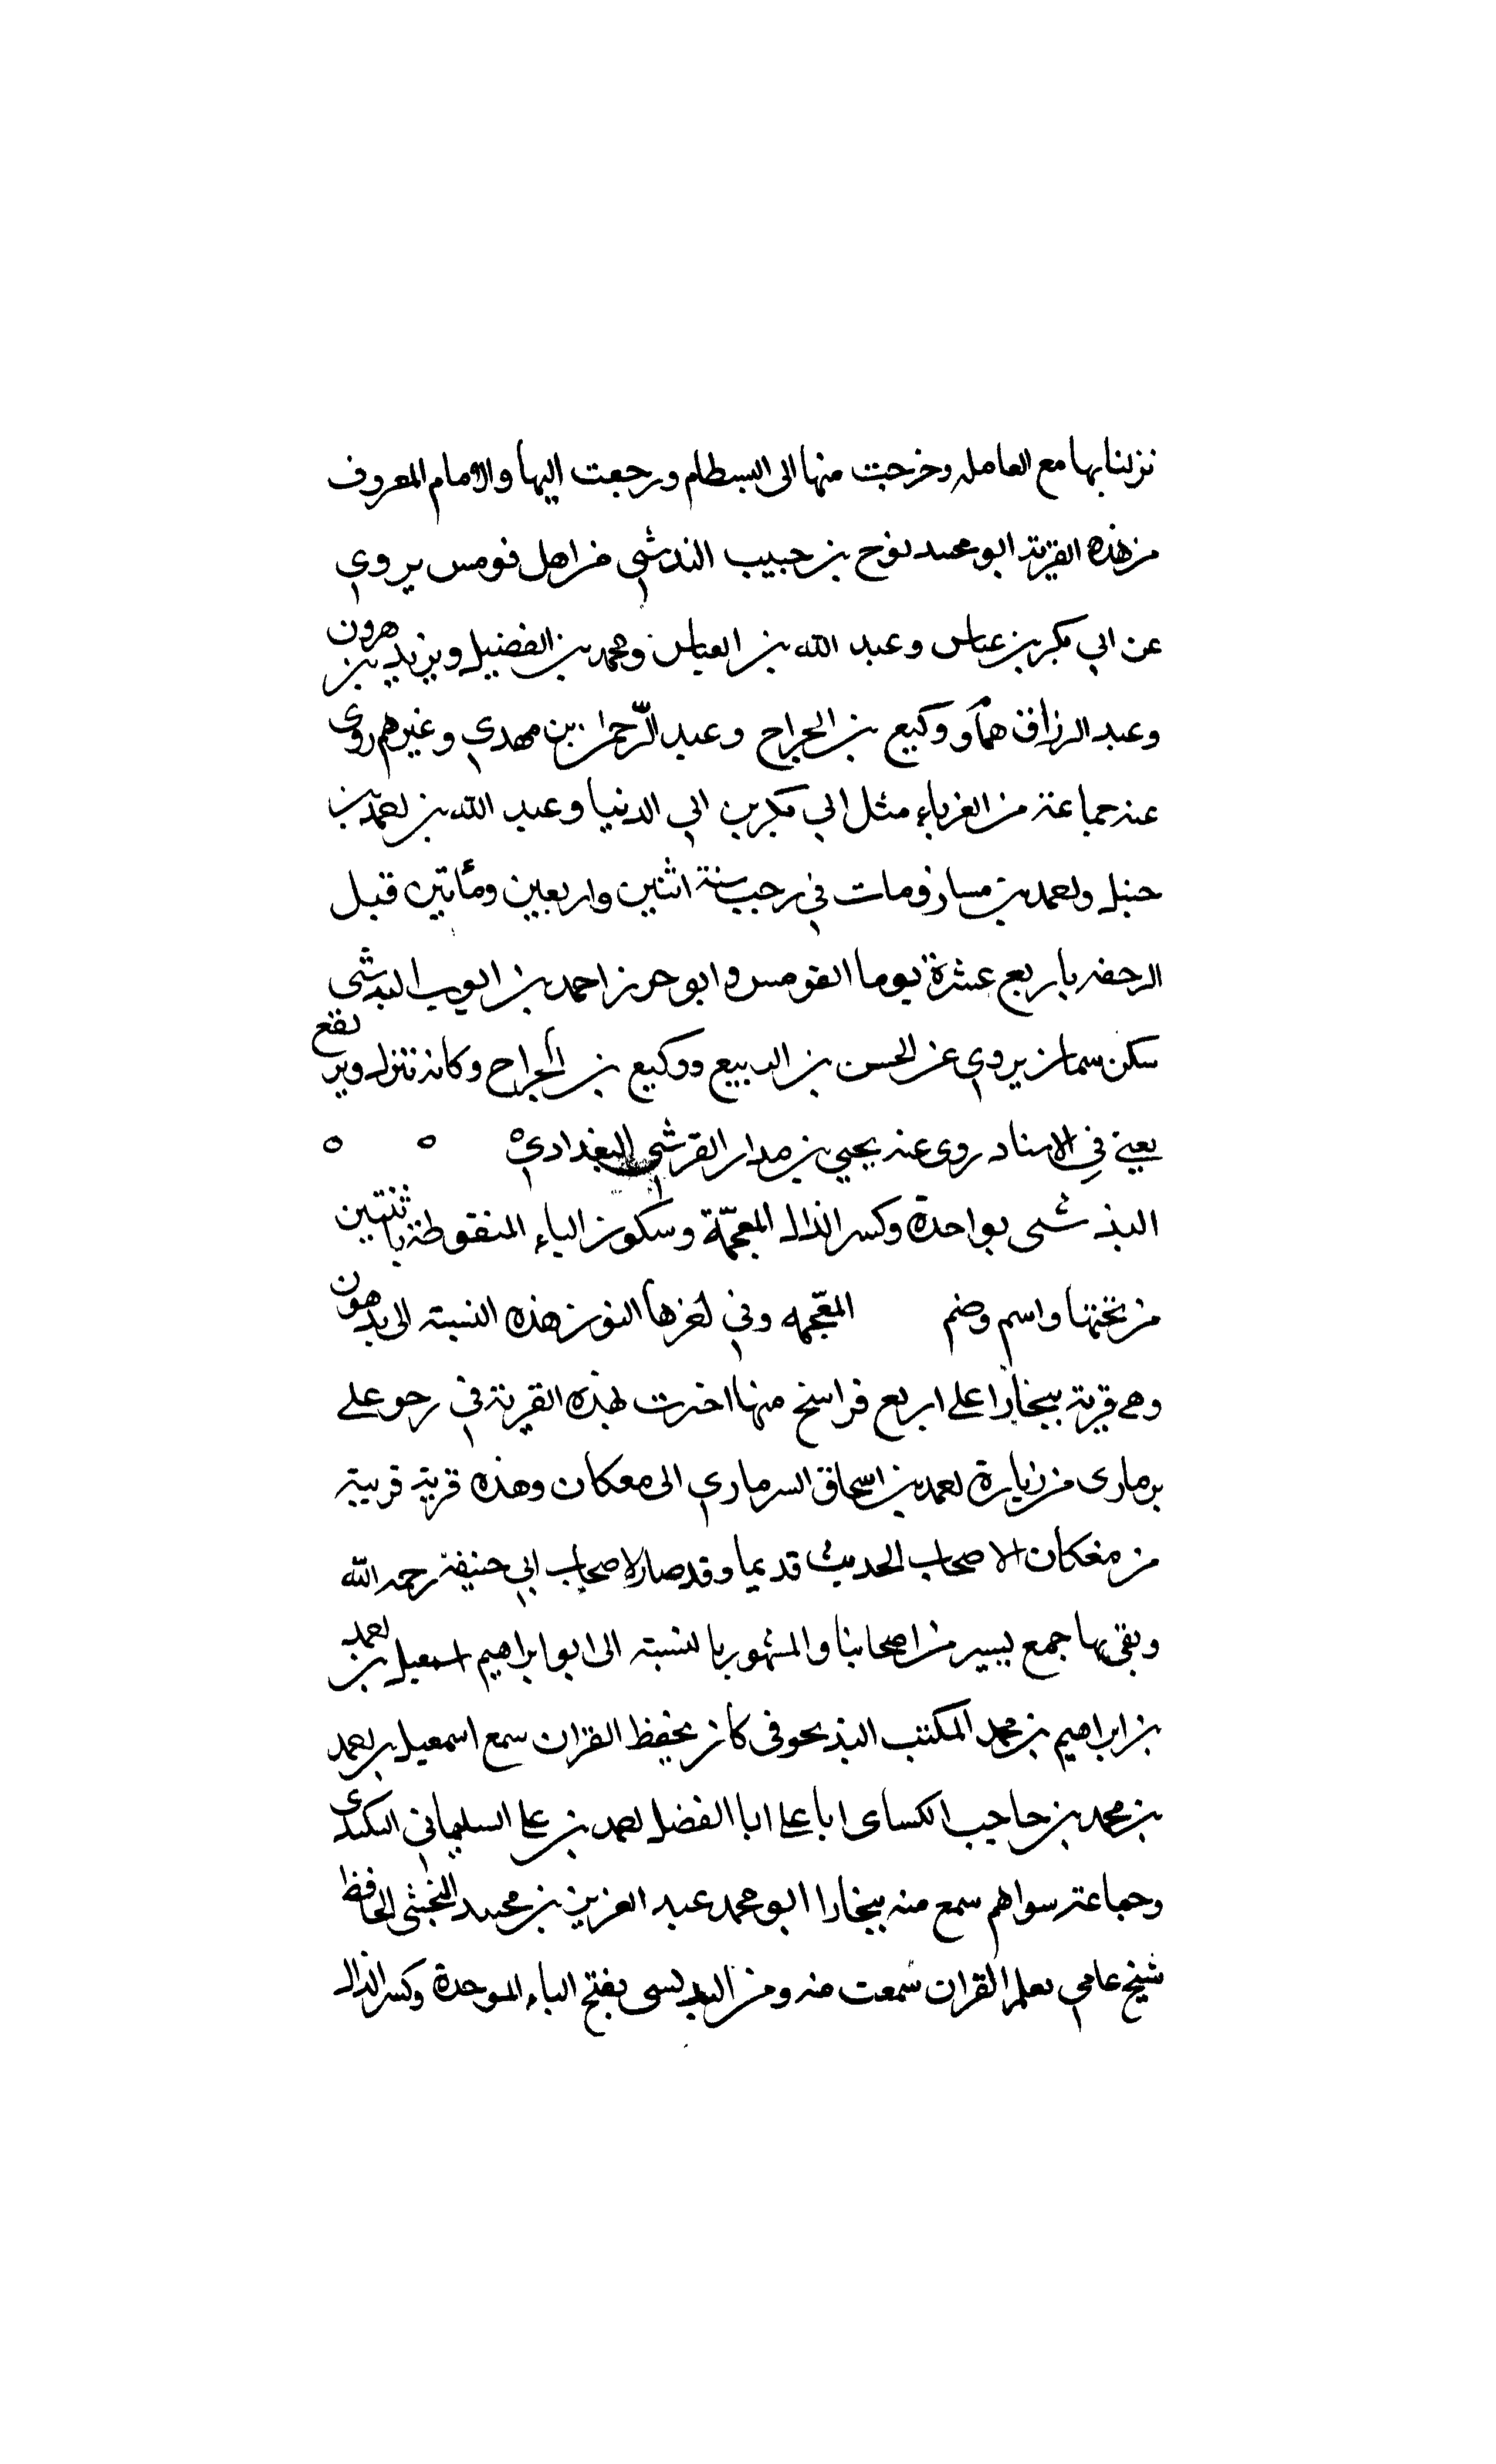 نزلنا بها مع العامله وخرجت منها الى البسطام ورجعت اليها والامام المعروف
من هذه القرية ابو محمد نوح بن حبيب البذشي من اهل قومس يروي
عن ابي بكر بن عياس وعبد الله بن العباس ومحمد بن الفضيل ويزيد بن هرون
وعبد الرزاق همام ووكيع بن الجراح وعبد الرّحمن بن مهدي وغيرهم روى
عنه جماعة من الغرباء مثل ابي بكر بن ابي الدنيا وعبد الله بن احمد بن
حنبل واحمد بن مسار ومات في رجب سنة اثنين واربعين ومأتين قبل
الرحضه باربع عشرة يوما القومس وابو حرز احمد بن ايوب البدشى
سكن سمنان يروي عن الحسن بن الدبيع ووكيع بن الجراح وكان تنزل وير بقع
يعني في الاسناد روى عنه يحيي بن مدار القرشي البغدادي ه ه ه
البذ شى بواحدة وكسر الذال المعجمّة وسكون الياء المنقوطة باثنتين
من تحتها واسم وضم المعّجمه وفي اخرها النون هذه النسبة الى بدهون
وهى قرية ببخارا على اربع فراسخ منها اخرت بهذه القرية في رحوعلى
برمارى من زيارة احمد بن اسحاق السرماري الى معكان وهذه قرية قريبة
من مغكان الاصحاب الحديث قديما وقد صار لاصحاب ابي حنيفة رحمه الله
وبقي بها جمع يسير من اصحابنا والمشهور بالنسبة الى ابو ابراهيم اسمعيل بن احمد
بن ابراهيم بن محمد المكتب البذيحوفى كان يحفظ القران سمع اسمعيل بن احمد
بن محمد بن حاجب الكساى ابا على ابا الفضل احمد بن على السليماني البيكندى
وجماعة سواهم سمع منه ببخارا ابو محمد عبد العزيز بن محمد النخشى الحافظ
شيخ عامي يعلم القران سمعت منه ومن البدلسى بفتح الباء الموحدة وكسر الذال